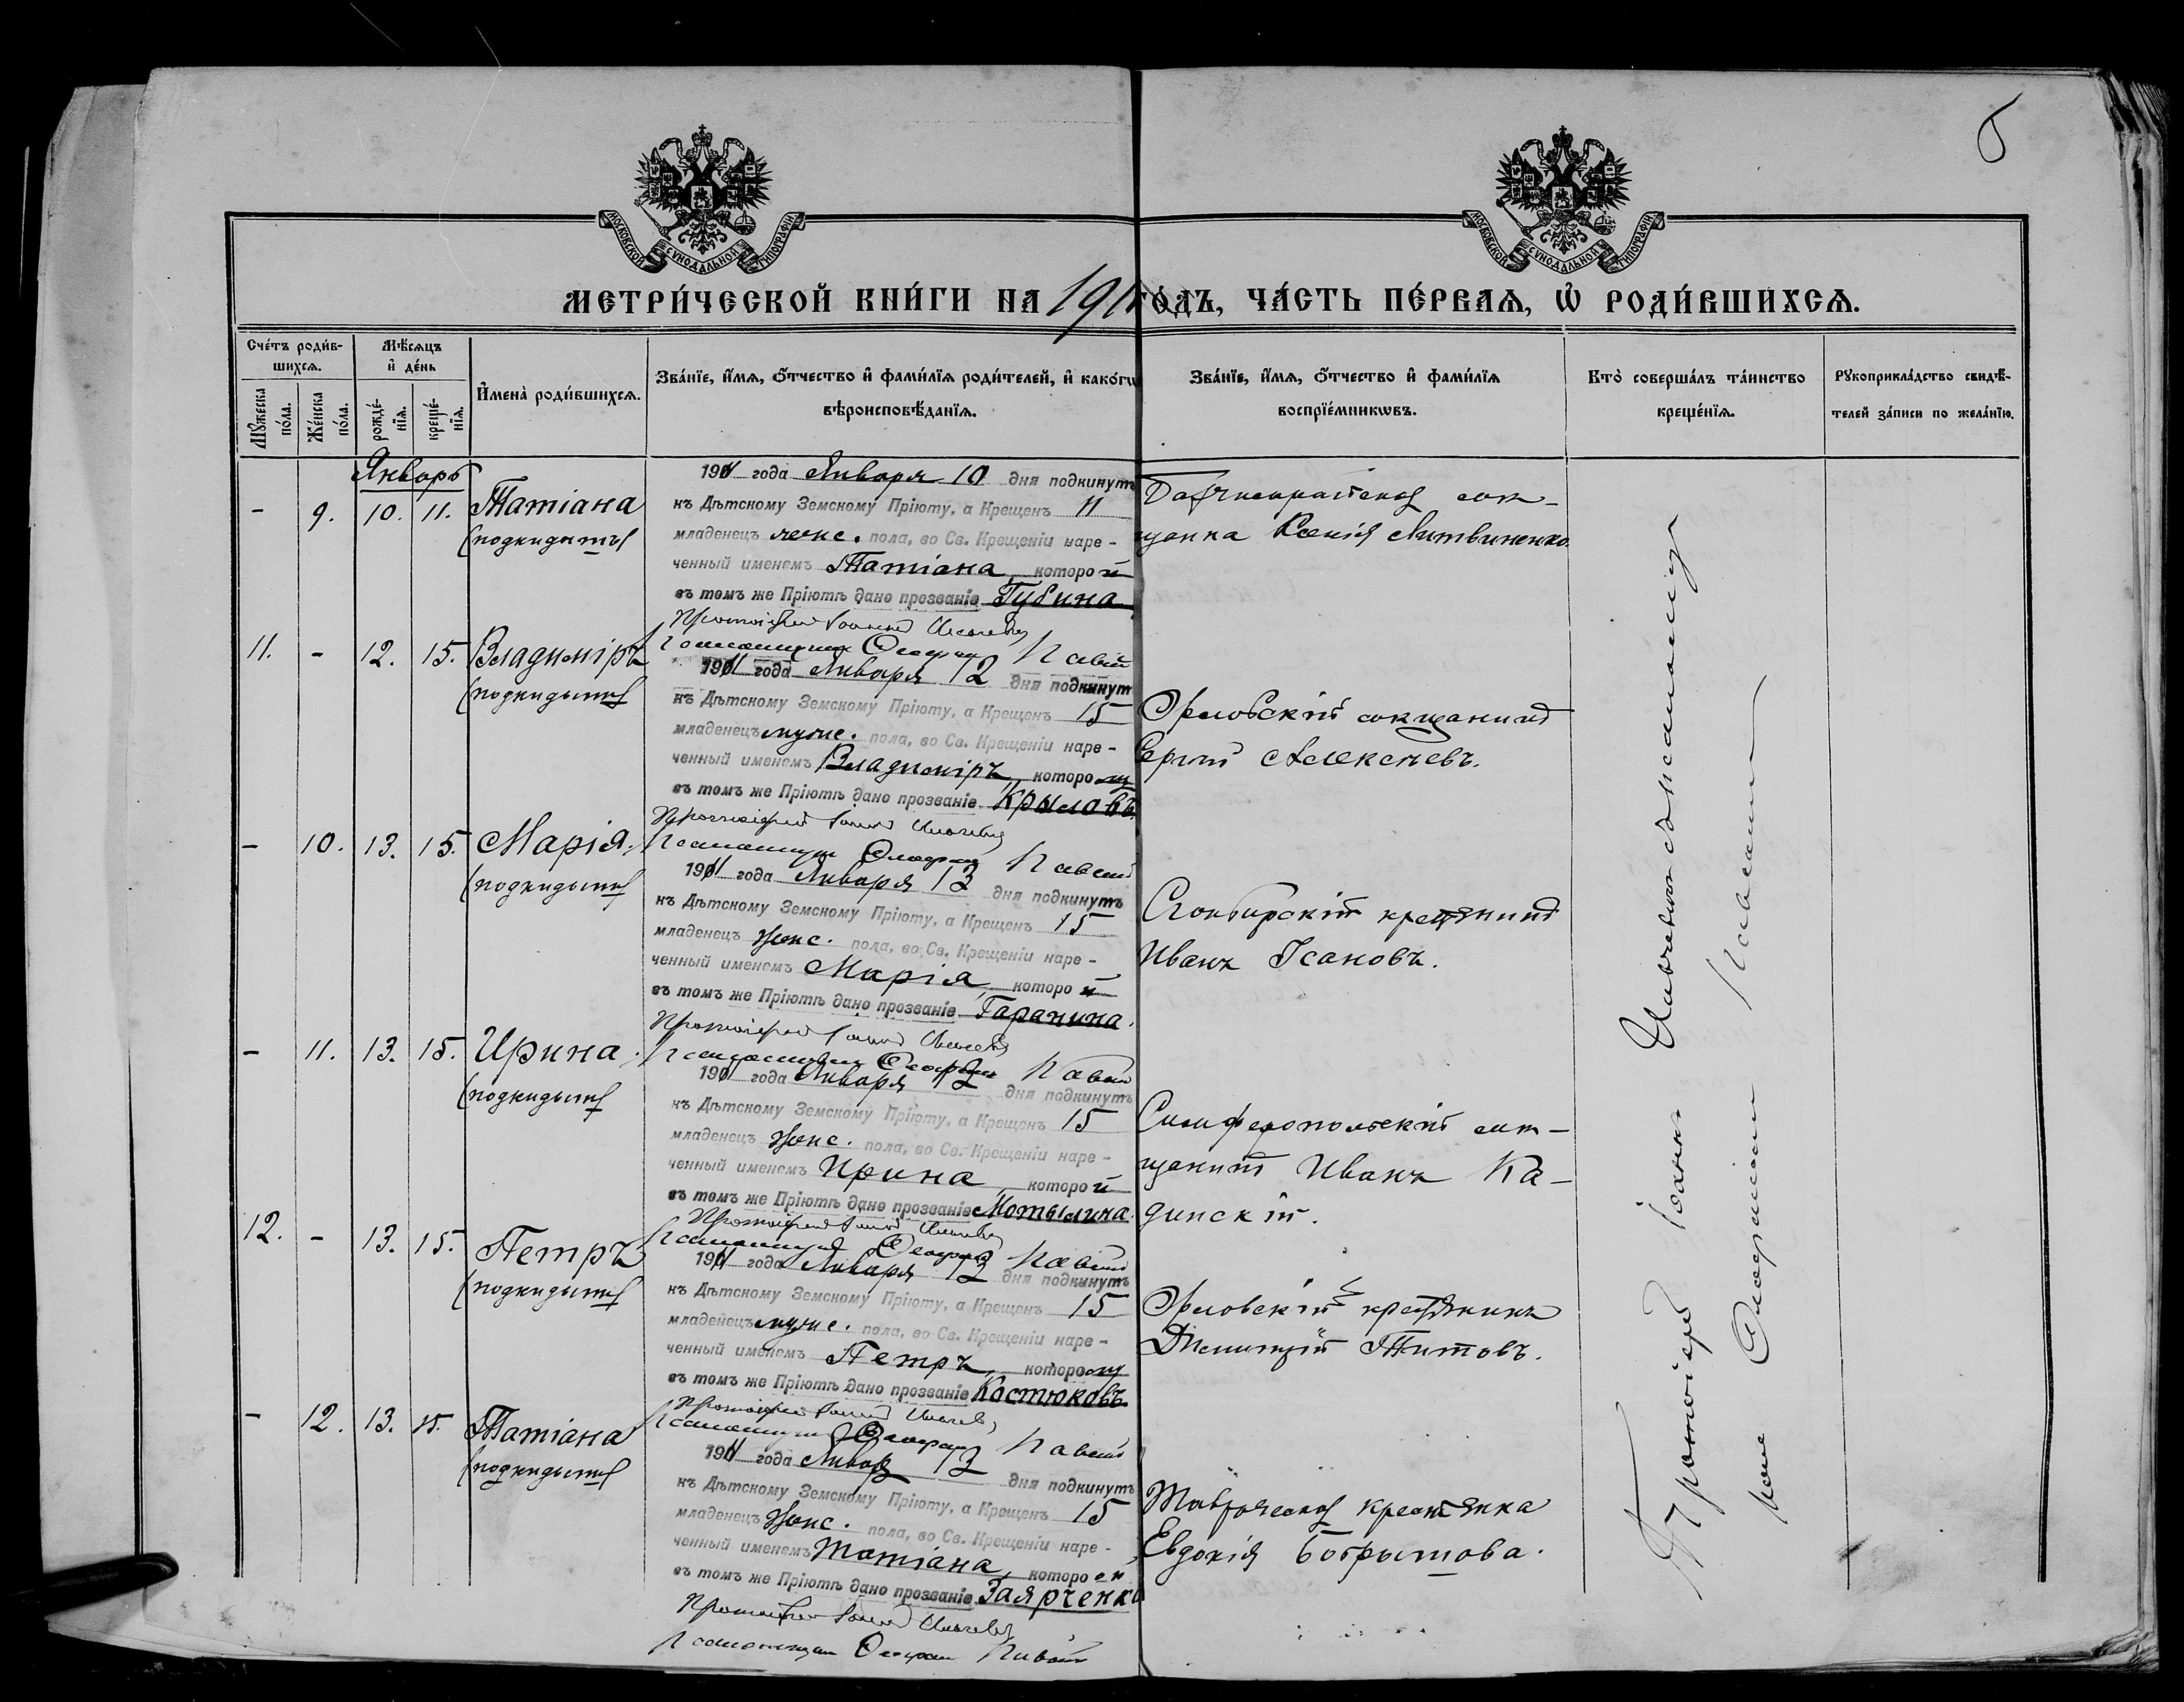 МОСКОВСКОЙ СѴНОДАЛЬНОЙ ТИПОГРАФІИ
МОСКОВСКОЙ СѴНОДАЛЬНОЙ ТИПОГРАФІИ
МЕТРИ́ЧЕСКОЙ КНИ́ГИ НА 1911 ГО́ДЪ, ЧА́СТЬ ПЕ́РВАЯ, Ѡ҆ РОДИ́ВШИХСЯ.
Сче́тъ роди́в-
шихся.
Мꙋ́жеска по́ла.
Же́нска по́ла.
Мѣ́сяцъ
и҆ де́нь
рожде́-нїя.
креще́-нїя.
И҆мена̀ роди́вшихся.
Зва́нїе, и҆́мя, ѻ҆́тчество и҆ фами́лїя роди́телей, и҆ како́гѡ
вѣроисповѣ́данїя.
Зва́нїе, и҆́мя, ѻ҆́тчество и҆ фами́лїя
воспрїе́мникѡвъ.
Кто̀ соверша́лъ та́инство
креще́нїя.
Рꙋкоприкла́дство свидѣ́-
телей за́писи по жела́нїю.
Январь
- 9. 10. 11. Татіана
(подкидышъ)
1911 года Января 10 дня подкинутъ
къ Дѣтскому Земскому Пріюту, а Крещенъ 11
младенецъ женс. пола, во Св. Крещеніи наре-
ченный именемъ Татіана, которой
въ томъ же Пріютѣ дано прозваніе Губина
Протоіерей Іоаннъ
Павелъ
мѣ-
щанка Ксенія Литвиненко.
11. - 12. 15. Владиміръ
(подкидышъ)
1911 года Января 12 дня подкинутъ
къ Дѣтскому Земскому Пріюту, а Крещенъ 15
младенецъ мужс. пола, во Св. Крещеніи наре-
ченный именемъ Владиміръ, которому
въ томъ же Пріютѣ дано прозваніе Крыловъ.
Протоіерей Іоаннъ
Павелъ
Орловскій мѣщанинъ
Сергій Алексѣевъ.
- 10. 13. 15. Марія.
(подкидышъ)
1911 года Января 13 дня подкинутъ
къ Дѣтскому Земскому Пріюту, а Крещенъ 15
младенецъ женс. пола, во Св. Крещеніи наре-
ченный именемъ Марія, которой
въ томъ же Пріютѣ дано прозваніе Гаранина.
Протоіерей Іоаннъ
Павелъ
Симбирскій крестьянинъ
Иванъ Исановъ.
- 11. 13. 15. Ирина.
(подкидышъ)
1911 года Января 13 дня подкинутъ
къ Дѣтскому Земскому Пріюту, а Крещенъ 15
младенецъ женс. пола, во Св. Крещеніи наре-
ченный именемъ Ирина, которой
въ томъ же Пріютѣ дано прозваніе Мотылина.
Протоіерей Іоаннъ
Павелъ
Симферопольскій мѣ-
щанинъ Иванъ Ка-
динскій.
12. - 13. 15. Петръ
(подкидышъ)
1911 года Января 13 дня подкинутъ
къ Дѣтскому Земскому Пріюту, а Крещенъ 15
младенецъ мужс. пола, во Св. Крещеніи наре-
ченный именемъ Петръ, которому
въ томъ же Пріютѣ дано прозваніе Костюковъ.
Протоіерей Іоаннъ
Павелъ
Орловскій крестьянинъ
Димитрій Титовъ.
- 12. 13. 15. Татіана
(подкидышъ)
1911 года Январ 13 дня подкинутъ
къ Дѣтскому Земскому Пріюту, а Крещенъ 15
младенецъ женс. пола, во Св. Крещеніи наре-
ченный именемъ Татіана, которой
въ томъ же Пріютѣ дано прозваніе Заярченко
Протоіерей Іоаннъ
Павелъ
Таврическая крестьянка
Евдокія Бобрышова.
Протоіерей Іоаннъ